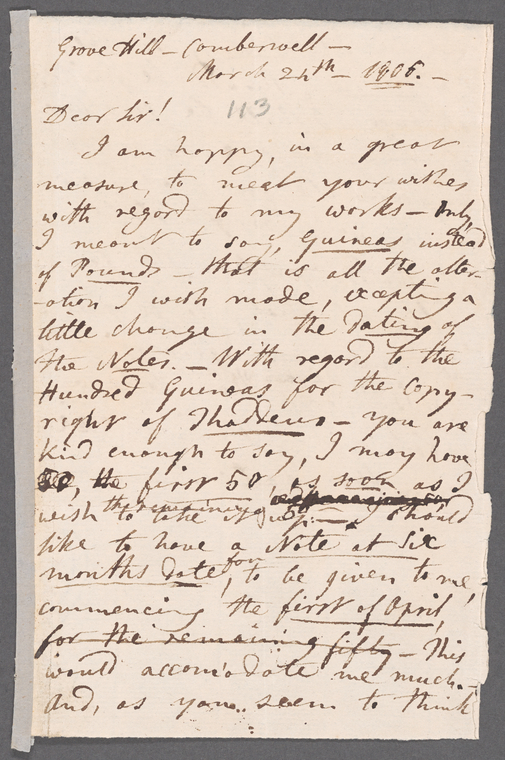 Grove Hill - Camberwell -
March 24th - 1806. -
113
Dear Sir!
I am happy, in a great
measure, to meet your wishes
with regard to my works - only,
I meant to say, Guineas instead
of Pounds - that is all the alter-
-ation I wish made, excepting a
little change in the dating of
the Notes. - With regard to the
Hundred Guineas for the copy-
right of Thaddeus - you are
kind enough to say, I may have
the first 50, as soon as I
the remaining 50
wish to take it up: - I should
like to have a Note at Six
months date, for
to be given to me,
commencing the first of April,
for the remaining fifty - This
would accomodate me much. -
And, as you seem to think